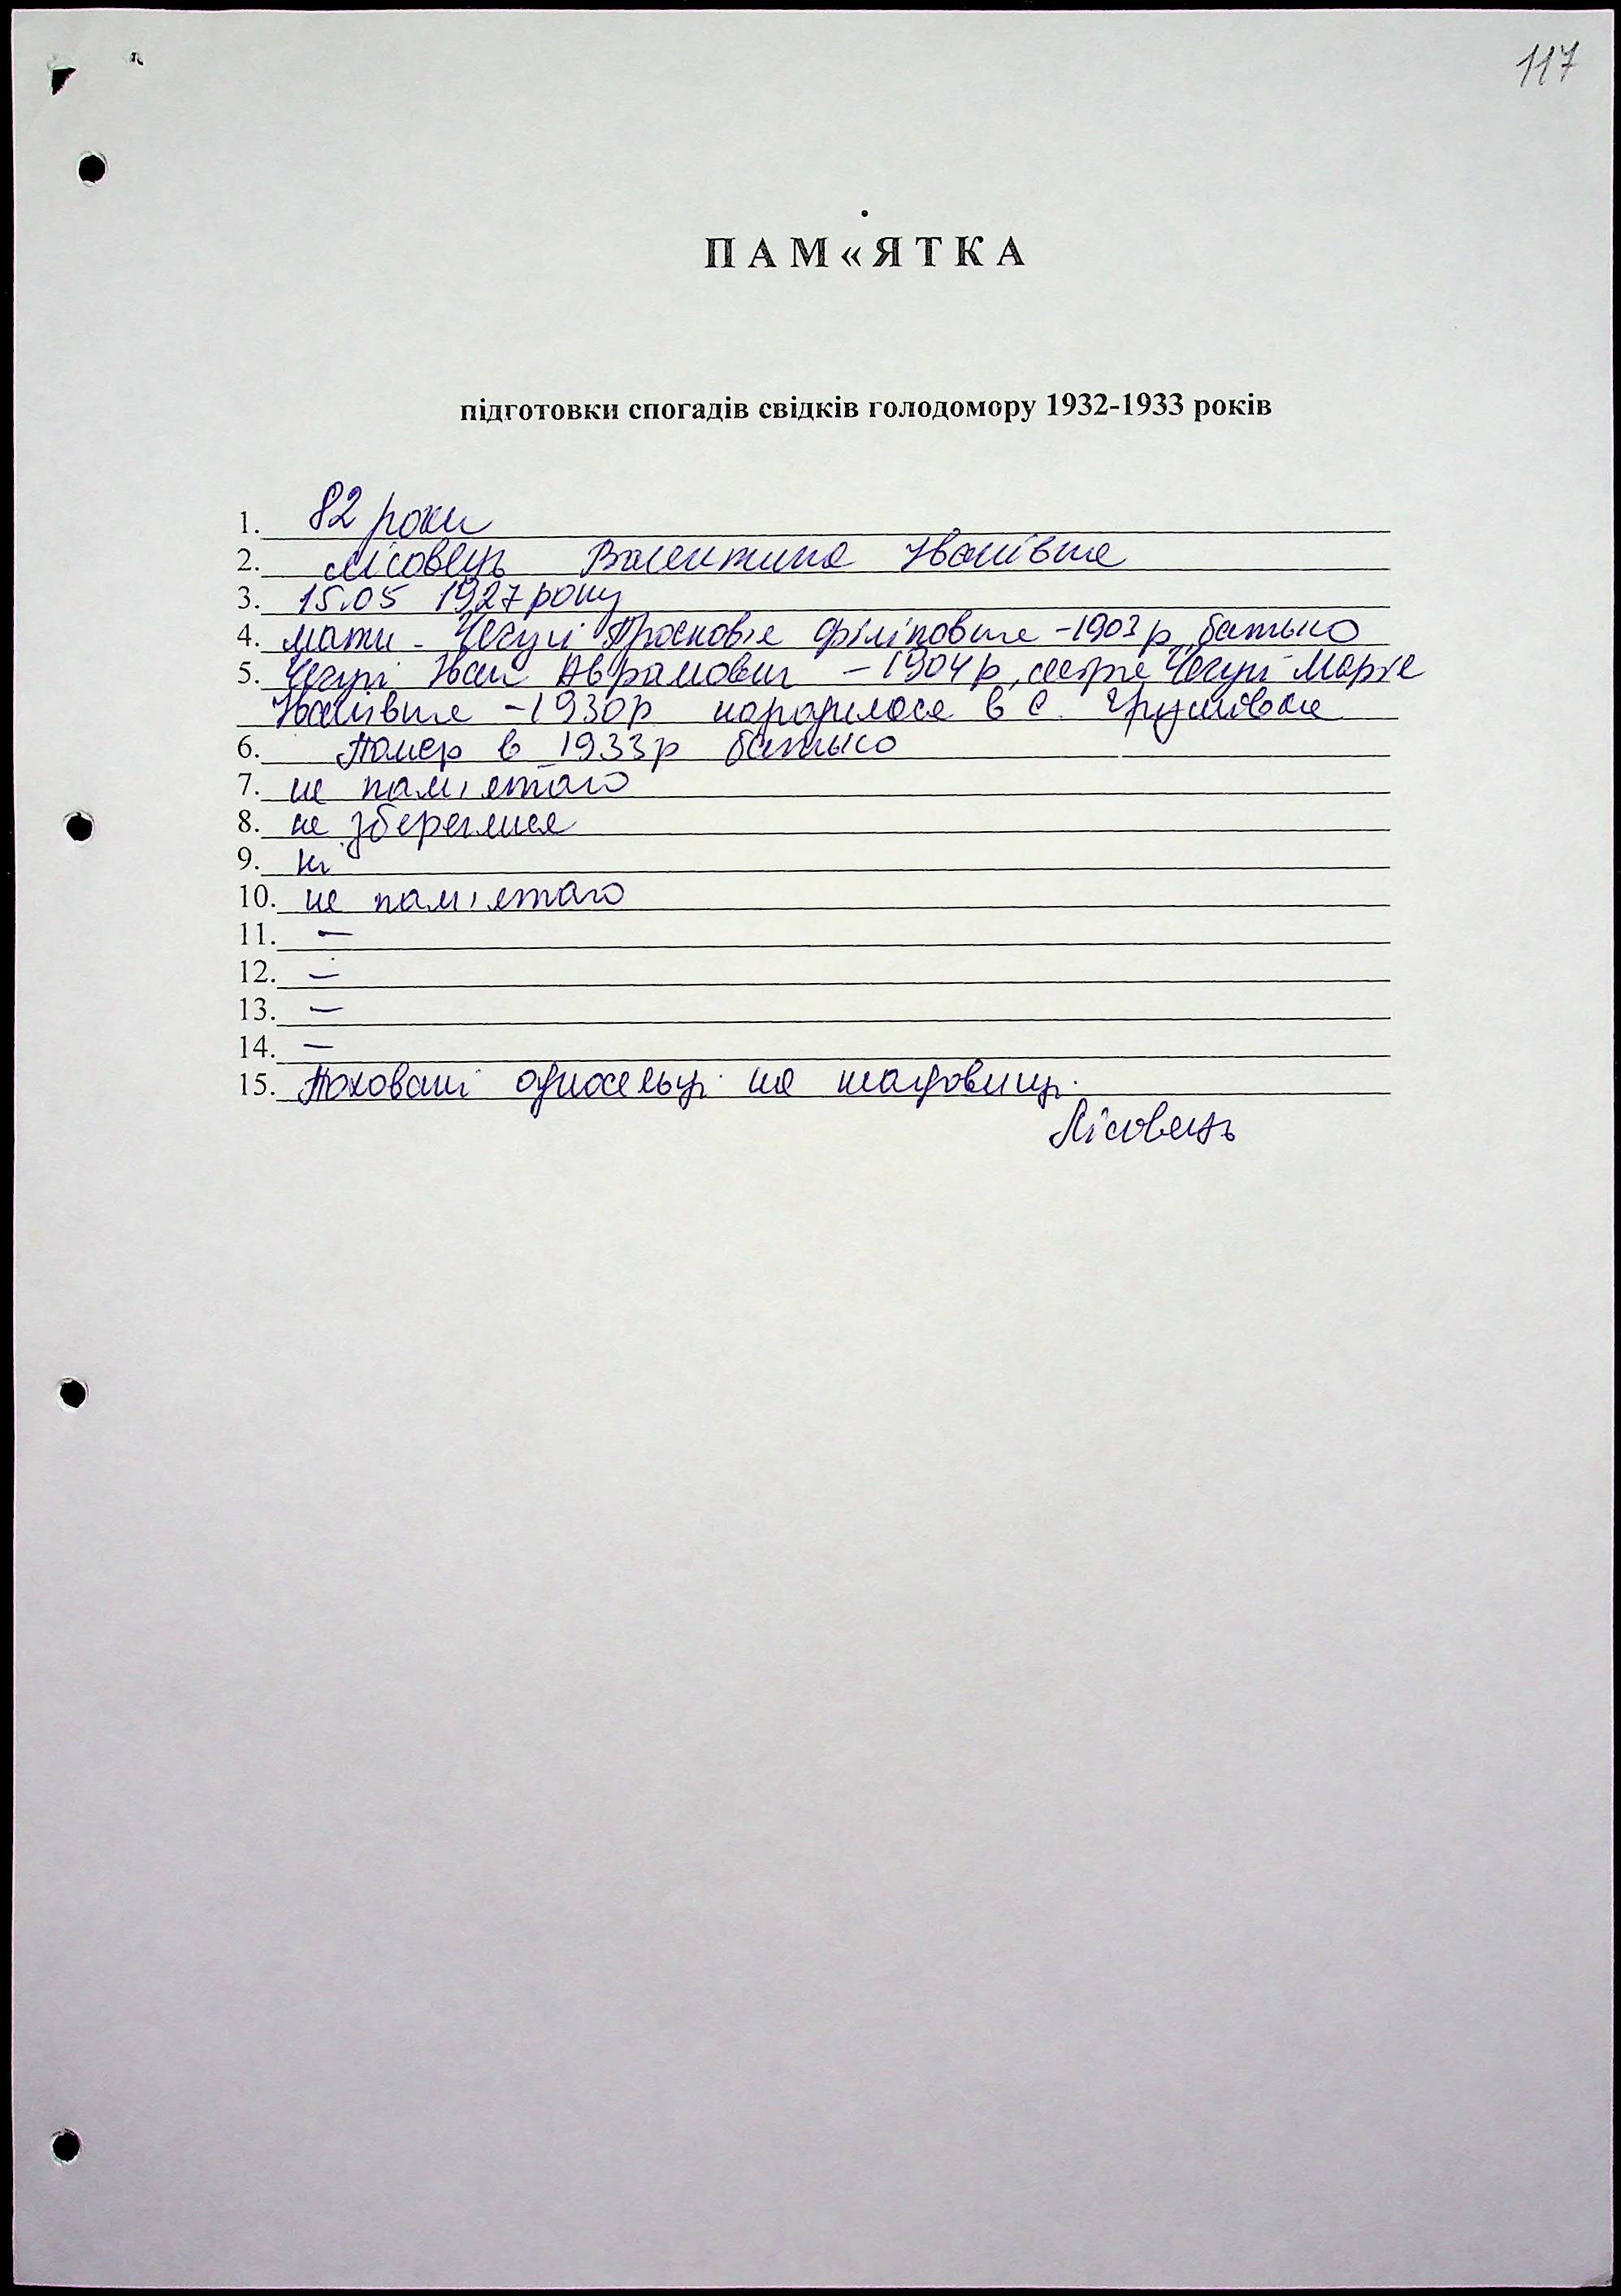 117
ПАМ«ЯТКА
підготовки спогадів свідків голодомору 1932-1933 років
1. 82 роки
2. Лісовець Валентина Іванівна
3. 15.05 1927 року
4. мати - Чегуі Просковія Філіповна -1903 р, батько
5. Чегурі Іван Аврамович - 1904 р, сестра Марія
Іванівна - 1930р народилася в с.
6. Помер в 1933р батько
7. не пам, ятаю
8. не збереглися
9. ні
10. не пам, ятаю
11. —
12. —
13. —
14. —
15. Поховані односельці на кладовищі.
Лісовець